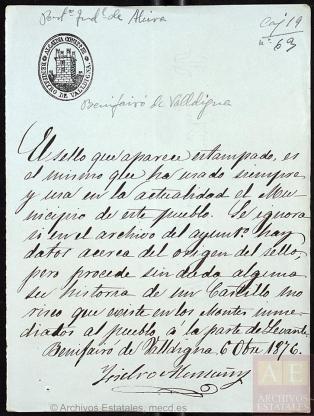 Part.º Jud.l de Alcira
Caj 19
nº 63
ALCALDIA CONSTIT.
BENIFAIRÓ DE VALLDIGNA
Benifairó de Valldigna
El sello que aparece estampado, es
el mismo que ha usado siempre
y usa en la actualidad el Mu-
nicipio de este pueblo. Se ignora
si en el archivo del ayunt.º hay
datos acerca del origen del sello,
pero procede sin duda alguna
su historia de un Castillo mo-
risco que existe en los Montes inme-
diatos al pueblo, a la parte de Levante.
Benifairó de Valldigna 6 Obre 1876.
Isidro
ARCHIVOS
ESTATALES
© Archivos Estatales, mecd.es